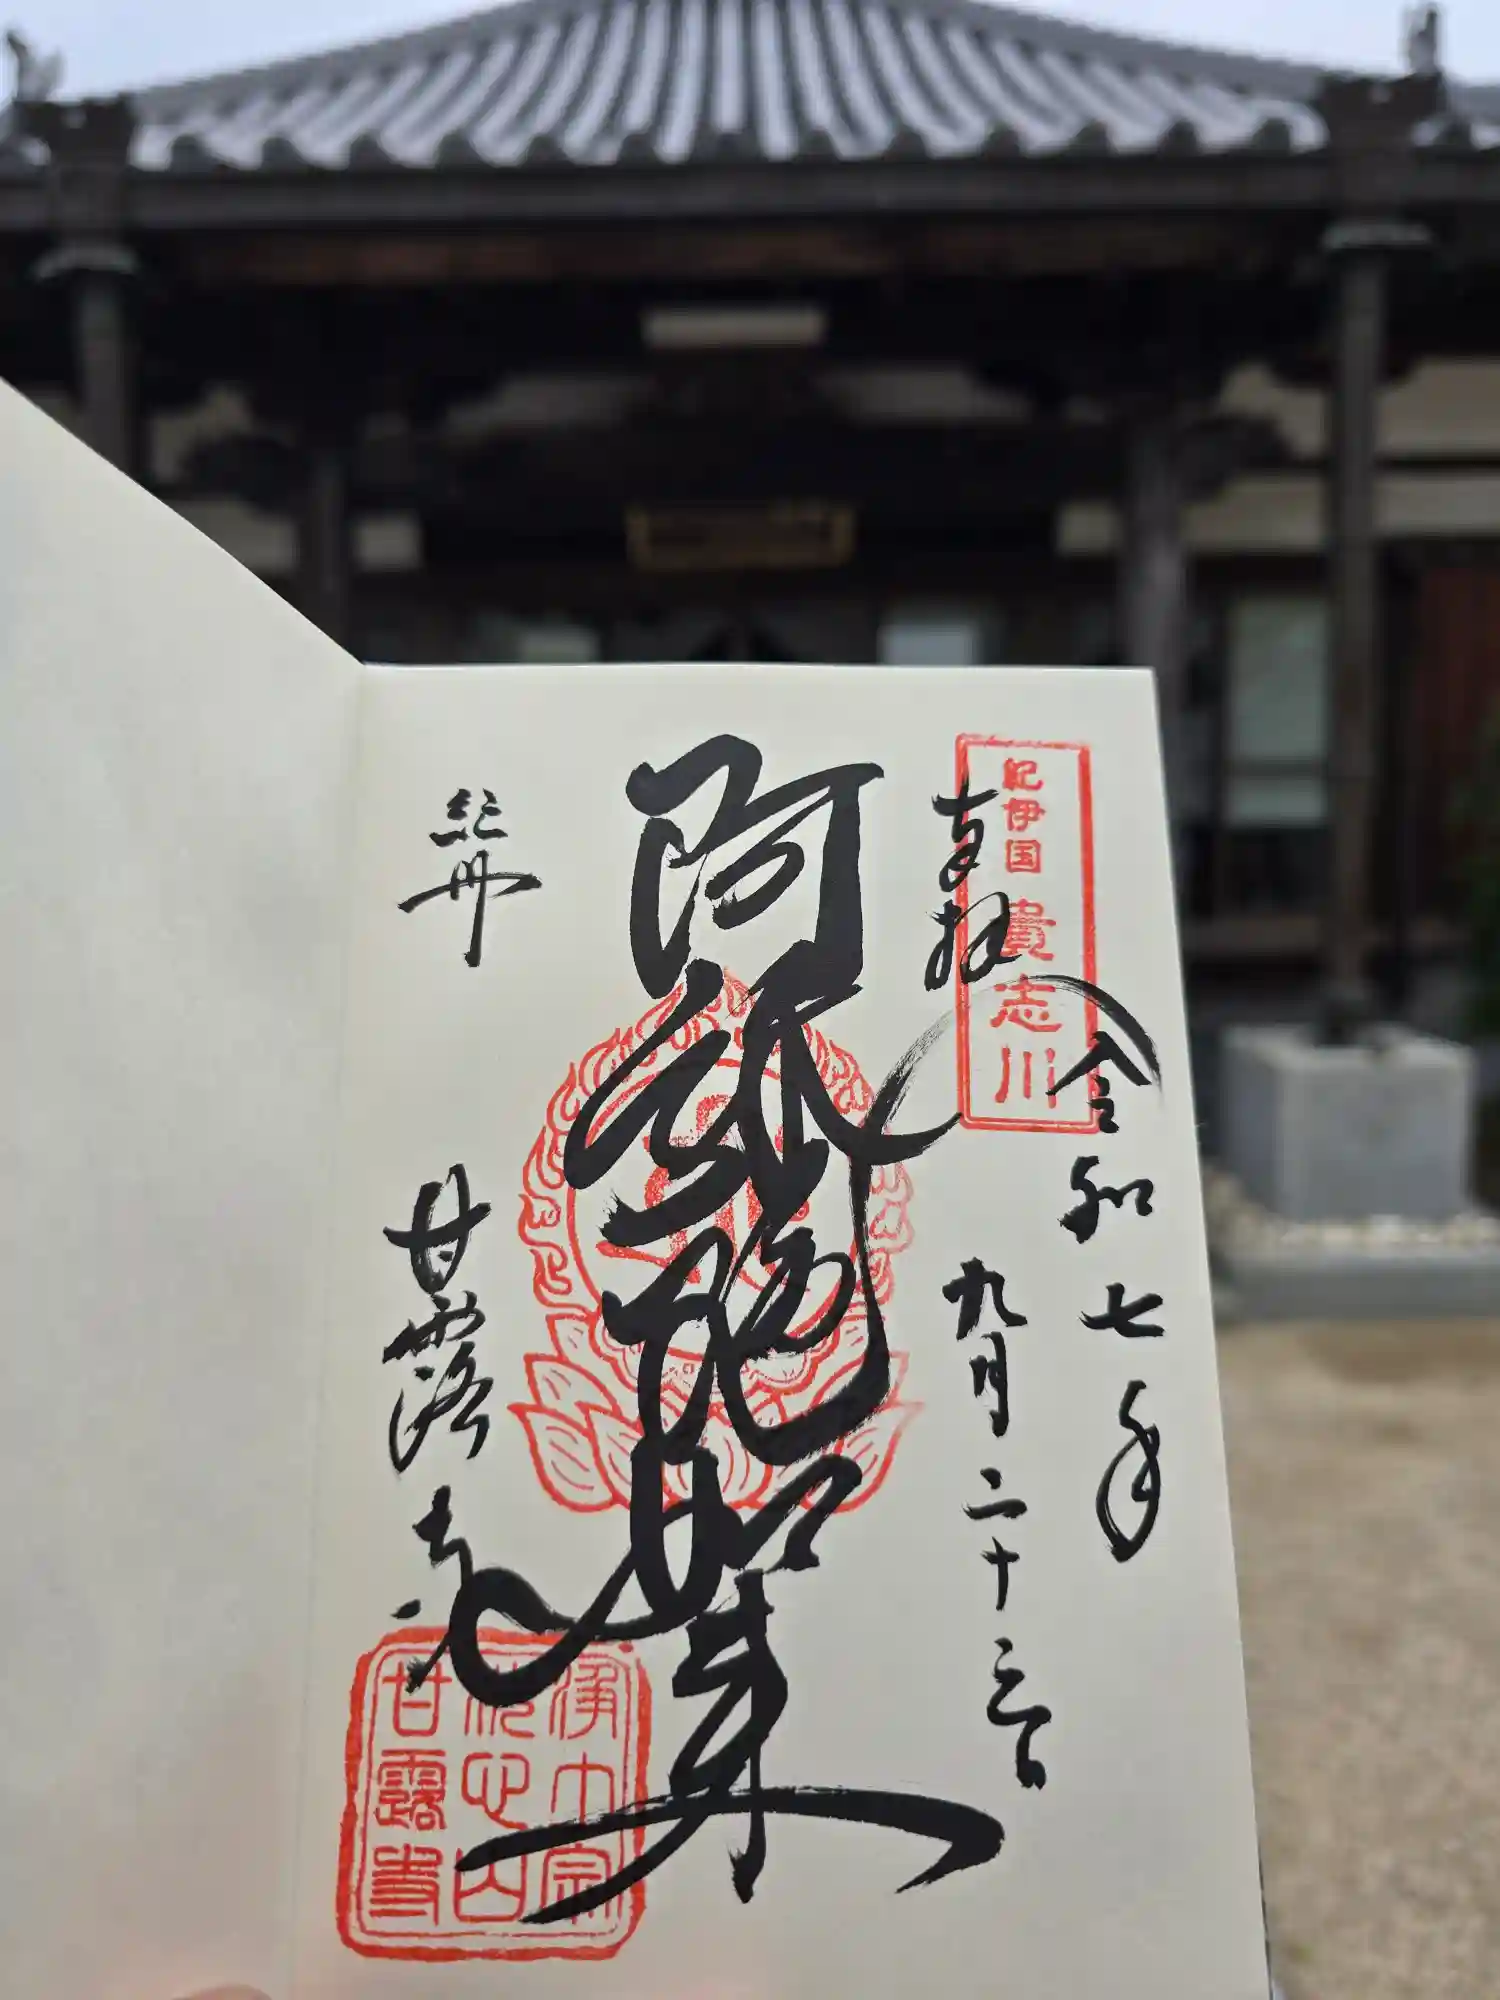 紀伊国 貴志川
奉拝
令和七年
九月二十三日
阿弥陀如来
紀州
甘露寺
浄土宗
心山
甘露寺